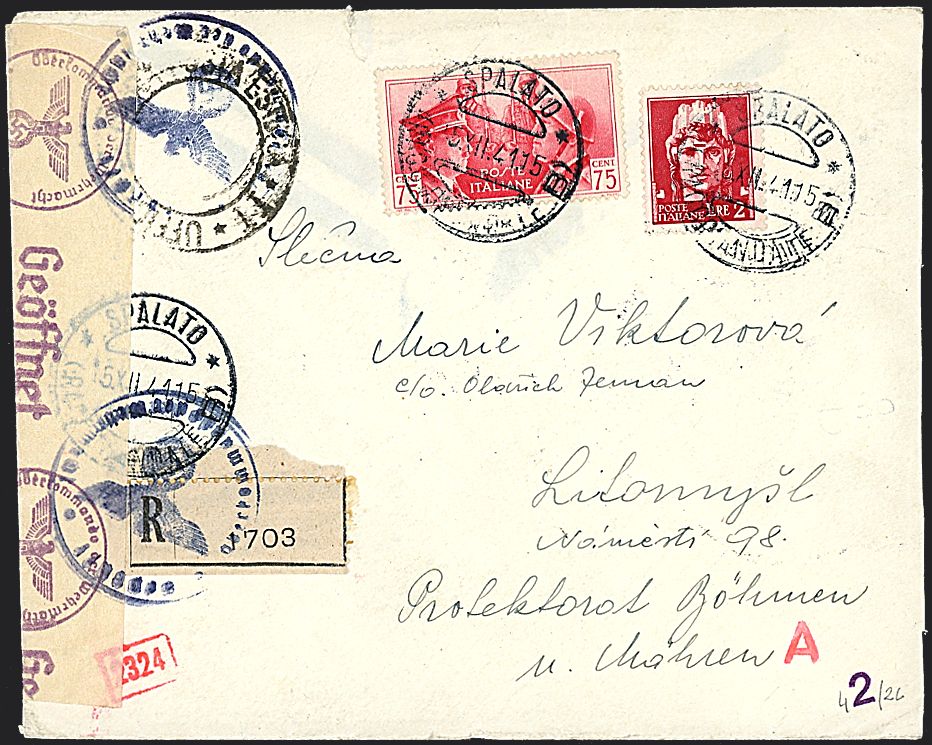 Oberkommando der Wehrmacht
Geöffnet
SPALATO
5.XII.41.15
POSTE
ITALIANE
CENT 75
CENT 75
SPALATO
5.XII.41.15
POSTE
ITALIANE
LIRE 2
Slečna
Marie Viktorová
c/o. Oldřich Zeman
SPALATO
5.XII.41.15
R
703
Litomyšl
Náměstí 98.
Protektorat Böhmen
u. Mähren
A
Oberkommando der Wehrmacht
Ge
2324
4 2/26